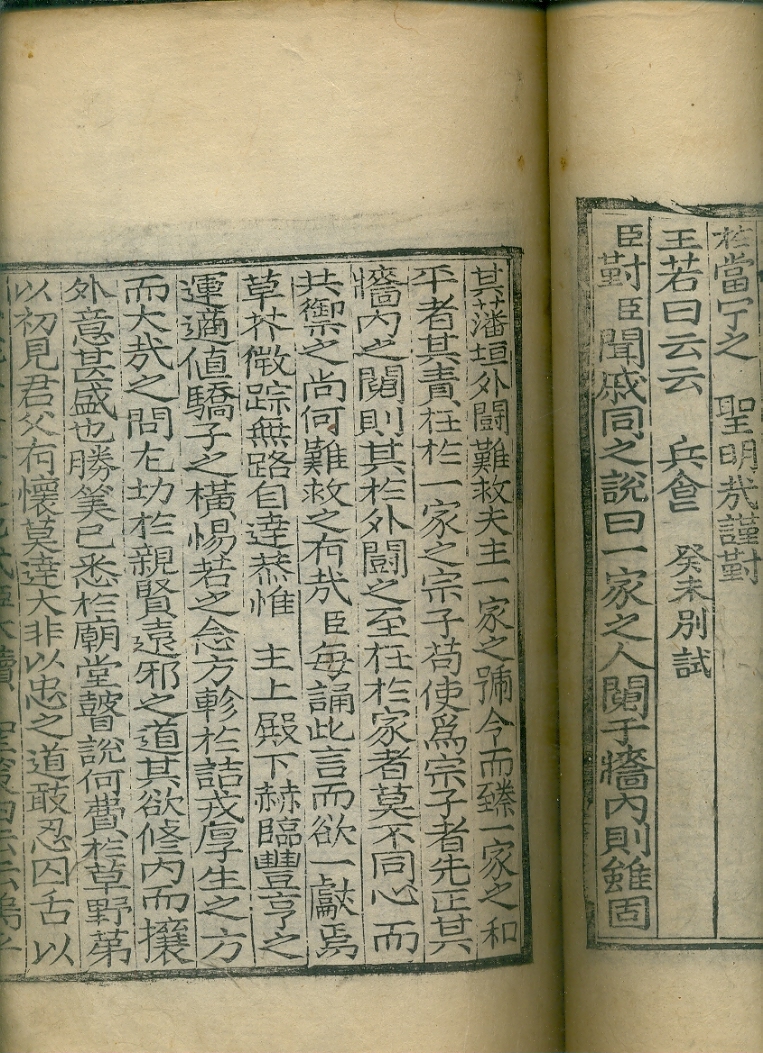 於當宁之 聖明哉謹對
王若曰云云 兵會 癸未別試
臣對臣聞戚同之說曰一家之人鬩于墻內則雖固
其藩垣外鬪難救夫主一家之號令而臻一家之和
平者其責在於一家之宗子苟使爲宗子者先正其
墻內之鬩則其於外鬪之至在於家者莫不同心而
共禦之尚何難救之有哉臣每誦此言而欲一獻焉
草芥微踪無路自達恭惟 主上殿下赫臨豐亨之
運適値驕子之橫惕若之念方軫於詰戎厚生之方
而大哉之問尤切於親賢遠邪之道其欲修內而攘
外意甚盛也勝筭已悉於廟堂瞽說何費於草野第
以初見君父有懷莫達大非以忠之道敢忍囚舌以